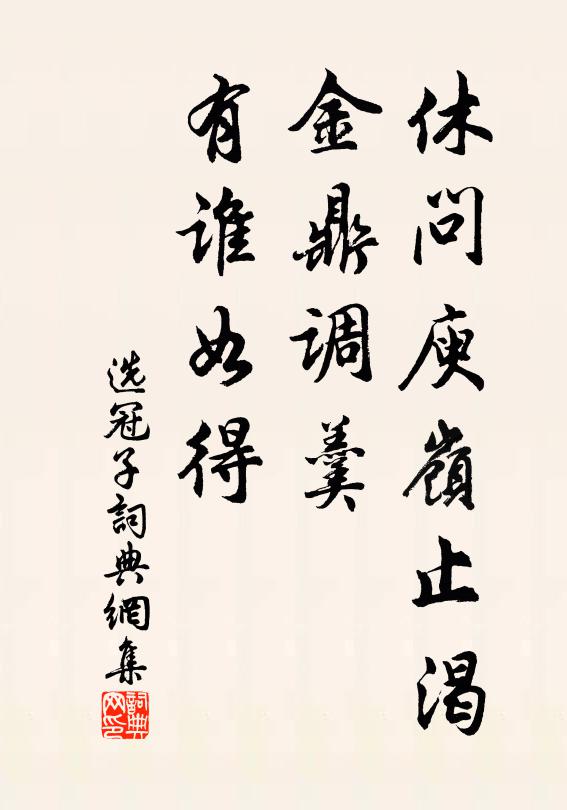 休問庾嶺止渴
金鼎調羹
有誰如得
选冠子詞典網集
詞典網印